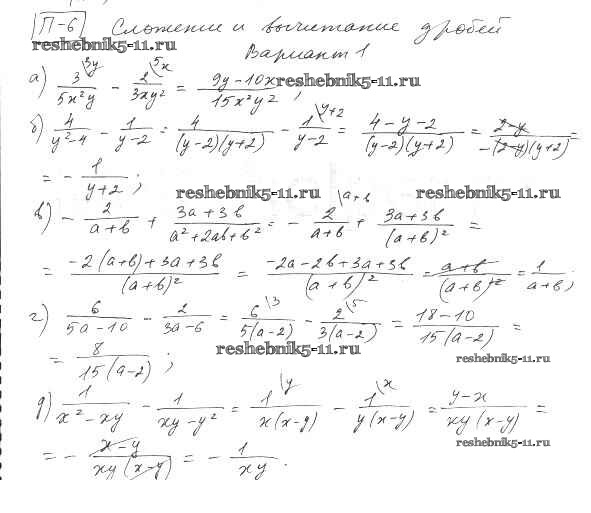 П-6 Сложение и вычитание дробей
reshebnik5-11.ru
Вариант 1
а) 3\3y/(5x²y) - 2\5x/(3xy²) = (9y-10x)/(15x²y²); reshebnik5-11.ru
б) 4/(y²-4) - 1/(y-2) = 4/((y-2)(y+2)) - 1\y+2/(y-2) = (4-y-2)/((y-2)(y+2)) = (2-y)/(-(2-y)(y+2)) =
= - 1/(y+2); reshebnik5-11.ru reshebnik5-11.ru
в) - 2/(a+b) + (3a+3b)/(a²+2ab+b²) = - 2\a+b/(a+b) + (3a+3b)/(a+b)² =
= (-2(a+b)+3a+3b)/(a+b)² = (-2a-2b+3a+3b)/(a+b)² = (a+b)/(a+b)² = 1/(a+b);
г) 6/(5a-10) - 2/(3a-6) = 6\3/(5(a-2)) - 2\5/(3(a-2)) = (18-10)/(15(a-2)) =
reshebnik5-11.ru
= 8/(15(a-2)); reshebnik5-11.ru
д) 1/(x²-xy) - 1/(xy-y²) = 1\y/(x(x-y)) - 1\x/(y(x-y)) = (y-x)/(xy(x-y)) =
reshebnik5-11.ru
= - (x-y)/(xy(x-y)) = - 1/(xy).